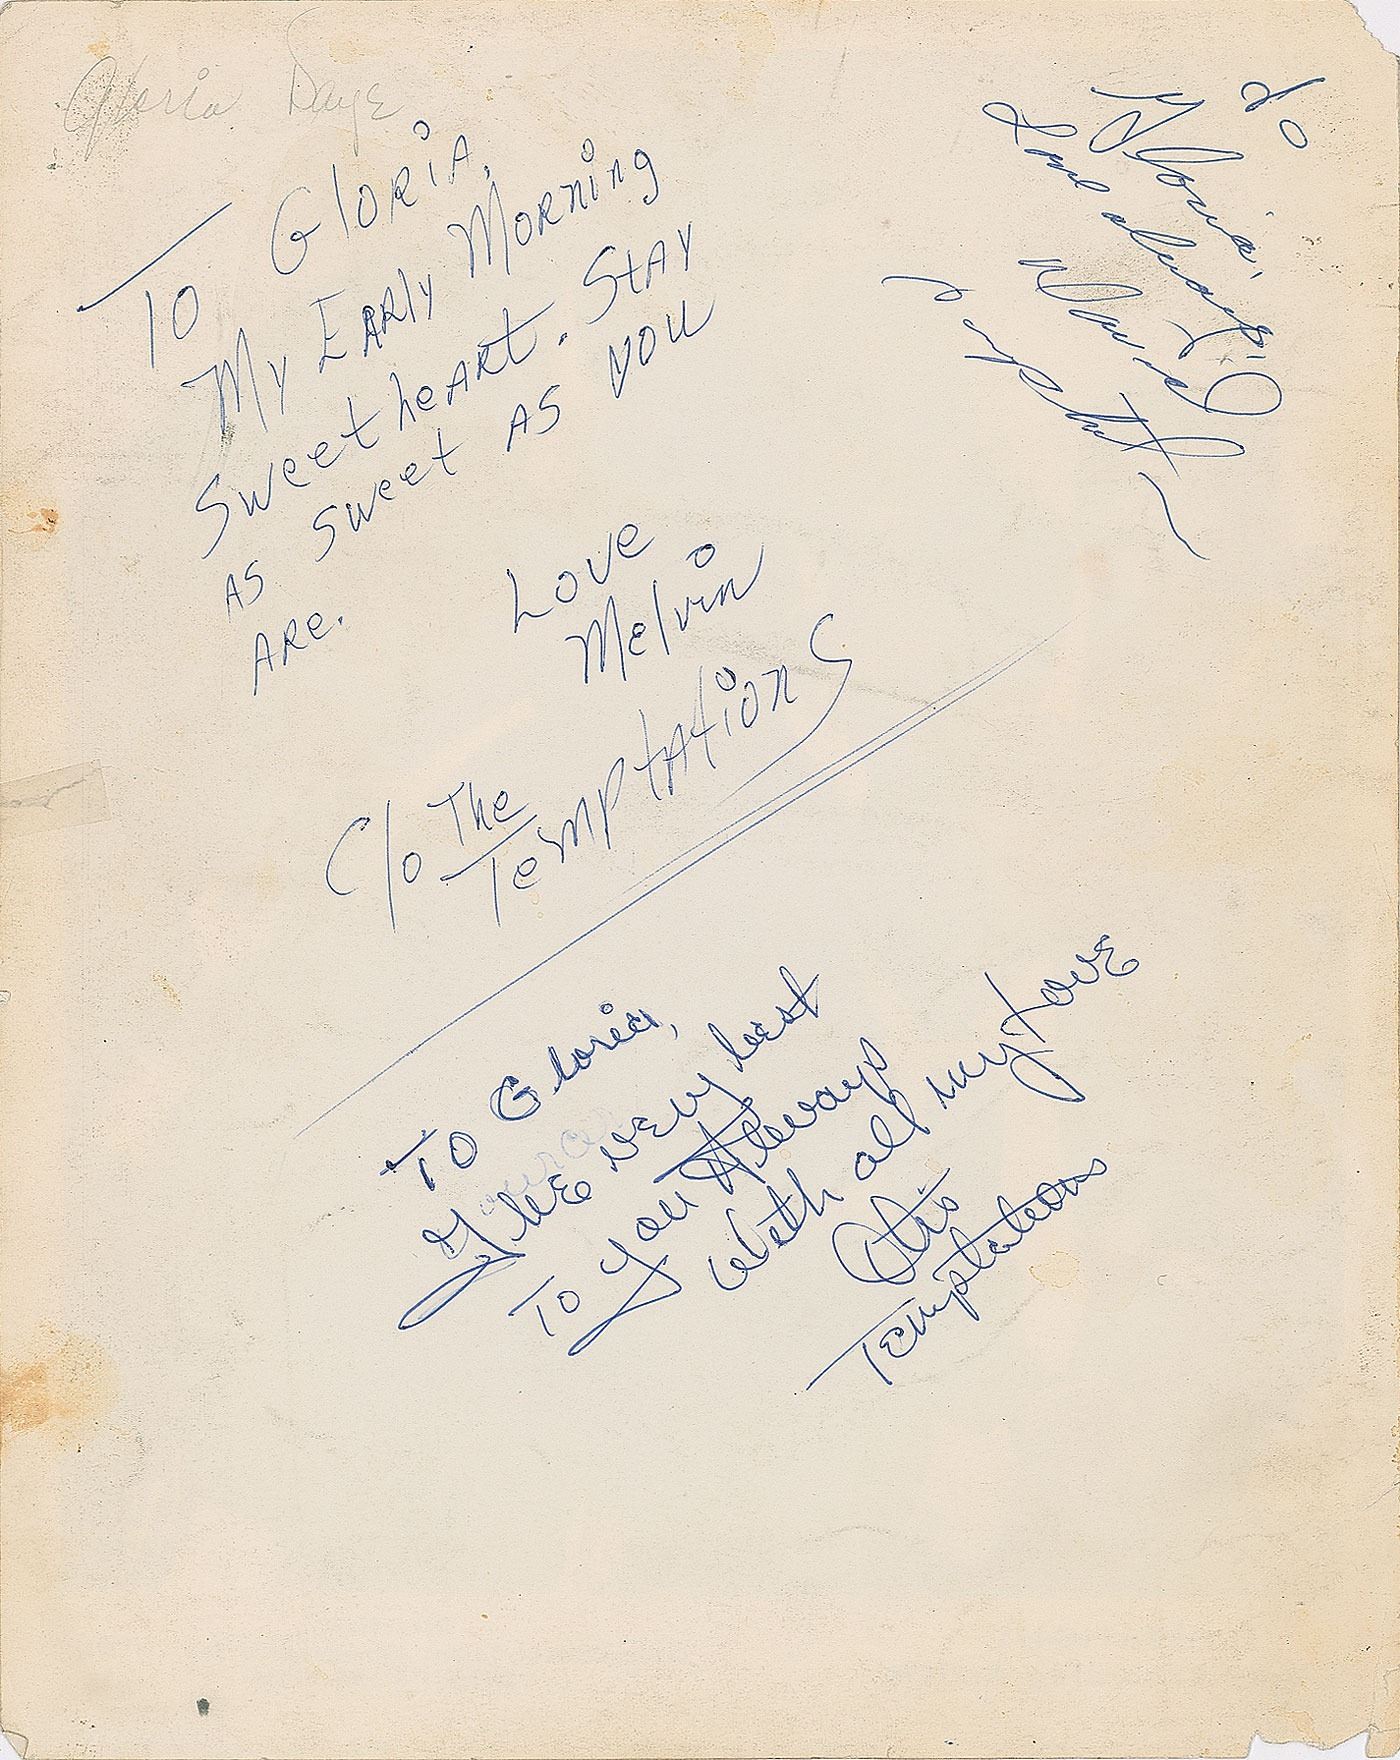 Gloria Daye
To Gloria,
My Early Morning
Sweetheart. Stay
As sweet as you
Are.
Love
Melvin
C/o The
Temptations
To
Gloria,
Love always,
David
To Gloria,
The very best
To you Always
With all my Love
Otis
Temptations